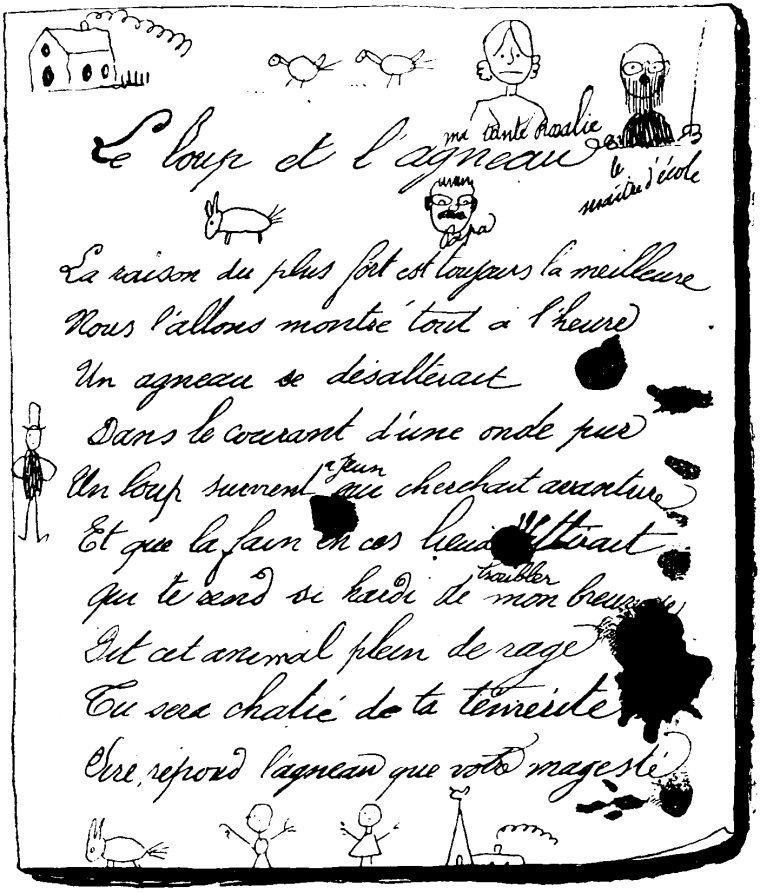 ma tante Rosalie
Le loup et l'agneau
le
maître d'école
Papa
La raison du plus fort est toujours la meilleure
Nous l'allons montré tout a l'heure
Un agneau se désaltérait
Dans le courant d'une onde pur
a jeun
Un loup survient qui cherchait avanture
Et que la fain en ces lieux attirait
troubler
Qui te rend si hardi de mon breuvage
Dit cet animal plein de rage
Tu sera chatié de ta témérité
Sire, répond l'agneau que votre magesté